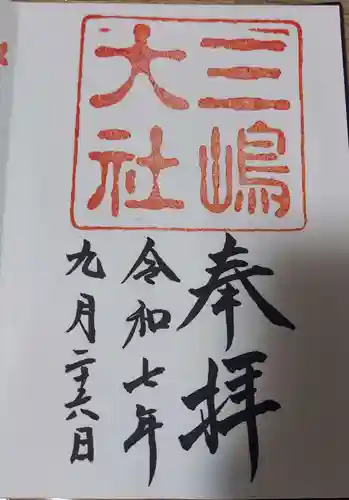 三嶋
大社
奉拝
令和七年
九月二十六日